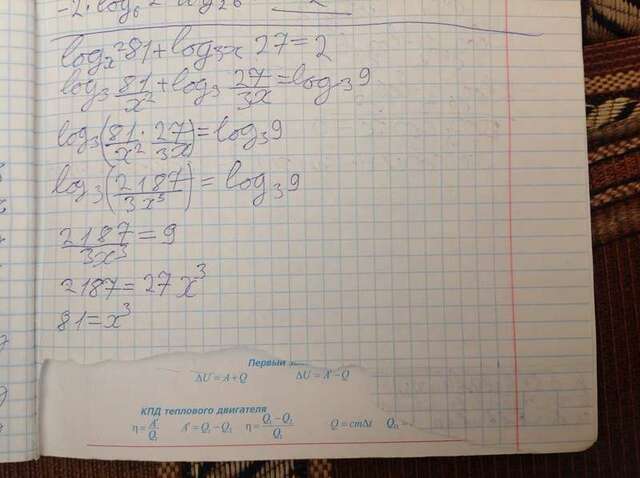 -2. log₆ 2
log_x² 81 + log₃x 27 = 2
log₃ 81/x² + log₃ 27/3x = log₃ 9
log₃(81/x² · 27/3x) = log₃ 9
log₃(2187/3x³) = log₃ 9
2187/3x³ = 9
2187 = 27x³
81 = x³
Первый
ΔU = A + Q ΔU = A' - Q
КПД теплового двигателя
η = A'/Q₁ A' = Q₁ - Q₂ η = (Q₁ - Q₂)/Q₁ Q = cmΔt